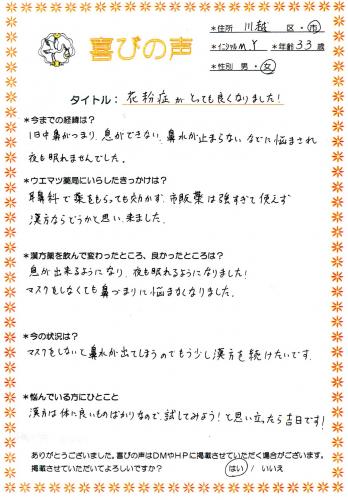 喜びの声
*住所 川越 区・市
*イニシャル M.Y *年齢 33 歳
*性別 男・女
タイトル： 花粉症がとっても良くなりました！
*今までの経緯は？
1日中鼻がつまり、息ができない、鼻水が止まらないなどに悩まされ
夜も眠れませんでした。
*ウエマツ薬局にいらしたきっかけは？
耳鼻科で薬をもらっても効かず、市販薬は強すぎて使えず
漢方ならどうかと思い、来ました。
*漢方薬を飲んで変わったところ、良かったところは？
息が出来るようになり、夜も眠れるようになりました！
マスクをしなくても鼻づまりに悩まなくなりました。
*今の状況は？
マスクをしないと鼻水が出てしまうのでもう少し漢方を続けたいです。
*悩んでいる方にひとこと
漢方は体に良いものばかりなので、試してみよう！と思い立ったら吉日です！
ありがとうございました。喜びの声はDMやHPに掲載させていただく場合がございます。
掲載させていただいてよろしいですか？ はい / いいえ